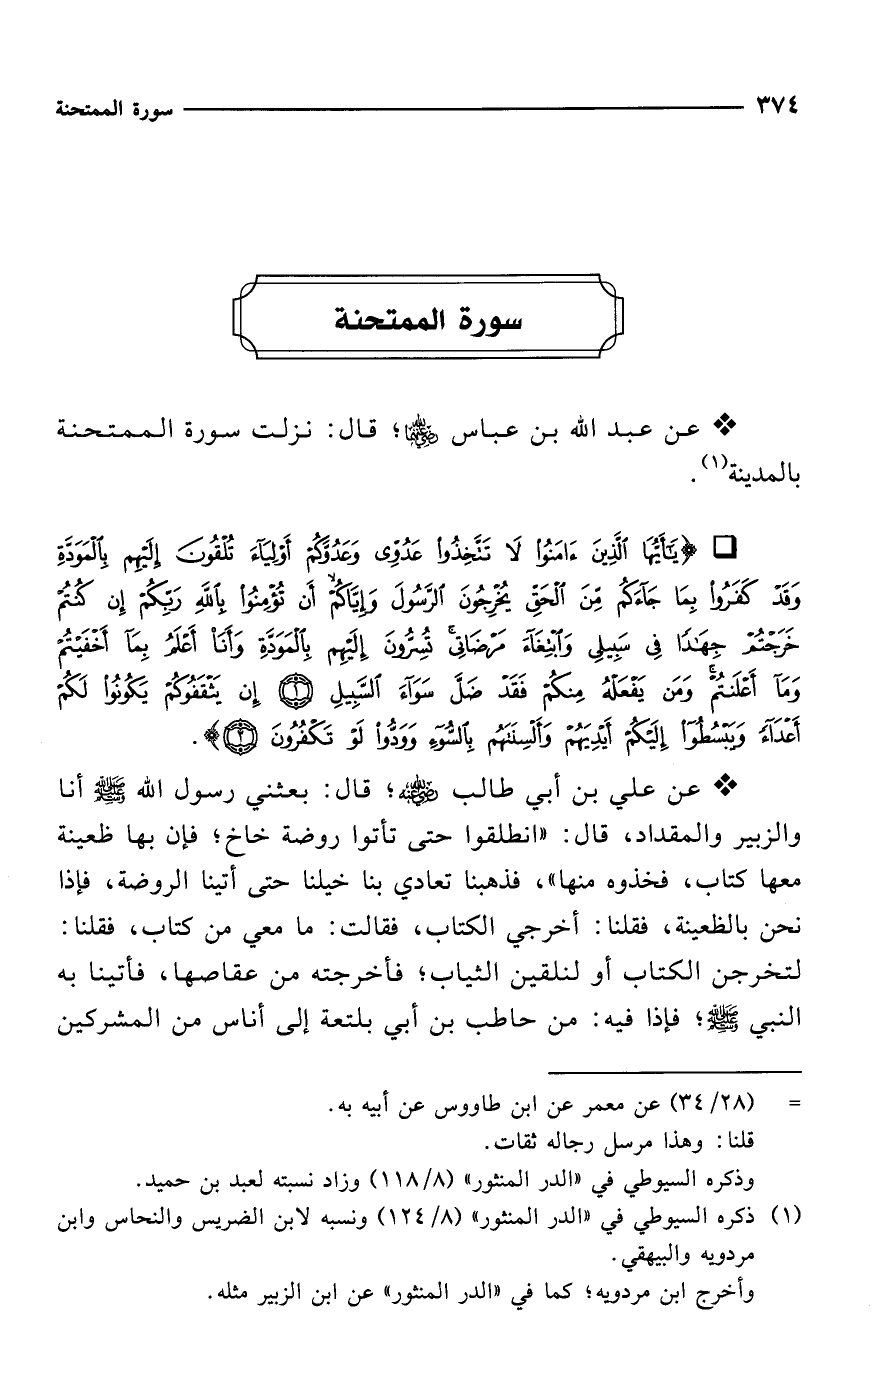 ٣٧٤ سورة الممتحنة
سورة الممتحنة
❖ عن عبد الله بن عباس رضي الله عنهما؛ قال: نزلت سورة الممتحنة
بالمدينة(١).
❑ ﴿يَـٰٓأَيُّهَا ٱلَّذِينَ ءَامَنُوا۟ لَا تَتَّخِذُوا۟ عَدُوِّى وَعَدُوَّكُمْ أَوْلِيَآءَ تُلْقُونَ إِلَيْهِم بِٱلْمَوَدَّةِ
وَقَدْ كَفَرُوا۟ بِمَا جَآءَكُم مِّنَ ٱلْحَقِّ يُخْرِجُونَ ٱلرَّسُولَ وَإِيَّاكُمْ ۙ أَن تُؤْمِنُوا۟ بِٱللَّهِ رَبِّكُمْ إِن كُنتُمْ
خَرَجْتُمْ جِهَـٰدًا فِى سَبِيلِى وَٱبْتِغَآءَ مَرْضَاتِى ۚ تُسِرُّونَ إِلَيْهِم بِٱلْمَوَدَّةِ وَأَنَا۠ أَعْلَمُ بِمَآ أَخْفَيْتُمْ
وَمَآ أَعْلَنتُمْ ۚ وَمَن يَفْعَلْهُ مِنكُمْ فَقَدْ ضَلَّ سَوَآءَ ٱلسَّبِيلِ ١ إِن يَثْقَفُوكُمْ يَكُونُوا۟ لَكُمْ
أَعْدَآءً وَيَبْسُطُوٓا۟ إِلَيْكُمْ أَيْدِيَهُمْ وَأَلْسِنَتَهُم بِٱلسُّوٓءِ وَوَدُّوا۟ لَوْ تَكْفُرُونَ ٢﴾.
❖ عن علي بن أبي طالب رضي الله عنه؛ قال: بعثني رسول الله ﷺ أنا
والزبير والمقداد، قال: «انطلقوا حتى تأتوا روضة خاخ؛ فإن بها ظعينة
معها كتاب، فخذوه منها»، فذهبنا تعادي بنا خيلنا حتى أتينا الروضة، فإذا
نحن بالظعينة، فقلنا: أخرجي الكتاب، فقالت: ما معي من كتاب، فقلنا:
لتخرجن الكتاب أو لنلقين الثياب؛ فأخرجته من عقاصها، فأتينا به
النبي ﷺ؛ فإذا فيه: من حاطب بن أبي بلتعة إلى أناس من المشركين
= (٢٨/ ٣٤) عن معمر عن ابن طاووس عن أبيه به.
قلنا: وهذا مرسل رجاله ثقات.
وذكره السيوطي في «الدر المنثور» (٨/ ١١٨) وزاد نسبته لعبد بن حميد.
(١) ذكره السيوطي في «الدر المنثور» (٨/ ١٢٤) ونسبه لابن الضريس والنحاس وابن
مردويه والبيهقي.
وأخرج ابن مردويه؛ كما في «الدر المنثور» عن ابن الزبير مثله.